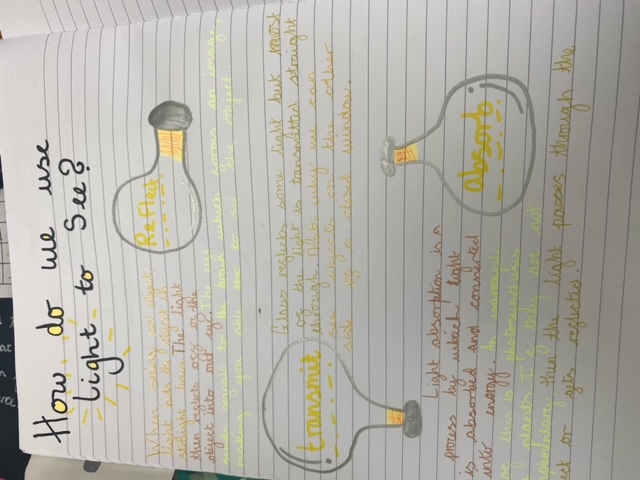 How do we use
Light to See?
Reflect
When seeing an object
light hits the object in
straight lines. The light
then reflects off of the
object into out eye.
The eye
signals to the brain which forms an image,
making you able to see the object.
transmit
Glass reflects some light but most
of the light is transmitted straight
through. Thats why we can
see objects on the other
side of a closed window.
absorb
Light absorption is a
process by which light
is absorbed and converted
into energy.
of this is photosynthesis
in plants. If they are not
then the light passes through the
or gets reflected.